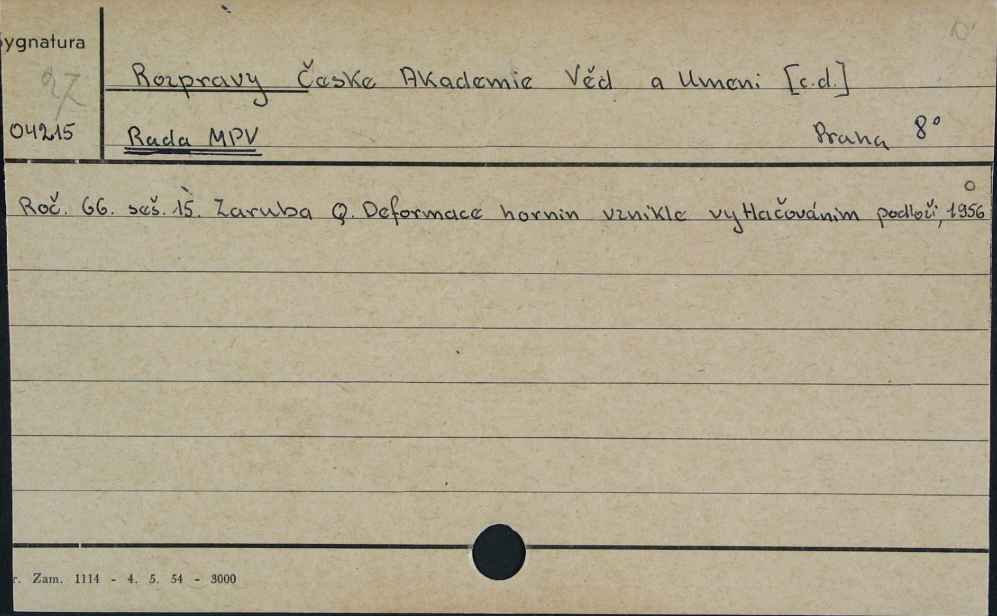 ygnatura
27
Rozpravy České Akademie Věd a Umeni [c.d.]
04215
Rada MPV
Praha 8°
Roč. 66. seš. 15. Zaruba Q. Deformace hornin vznikle vytlačováním podloži, 1956
r. Zam. 1114 - 4. 5. 54 - 3000